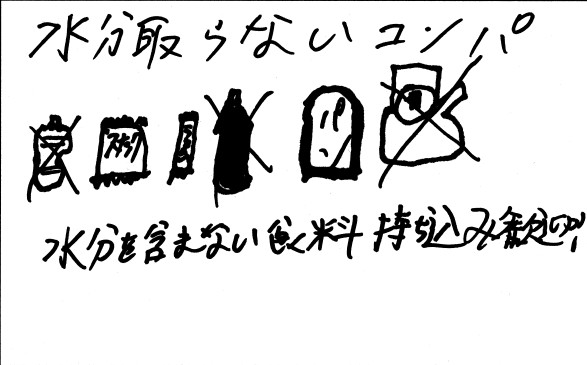 水分取らないコンパ
スナック
パン
水分を含まない食料持ち込み歓迎